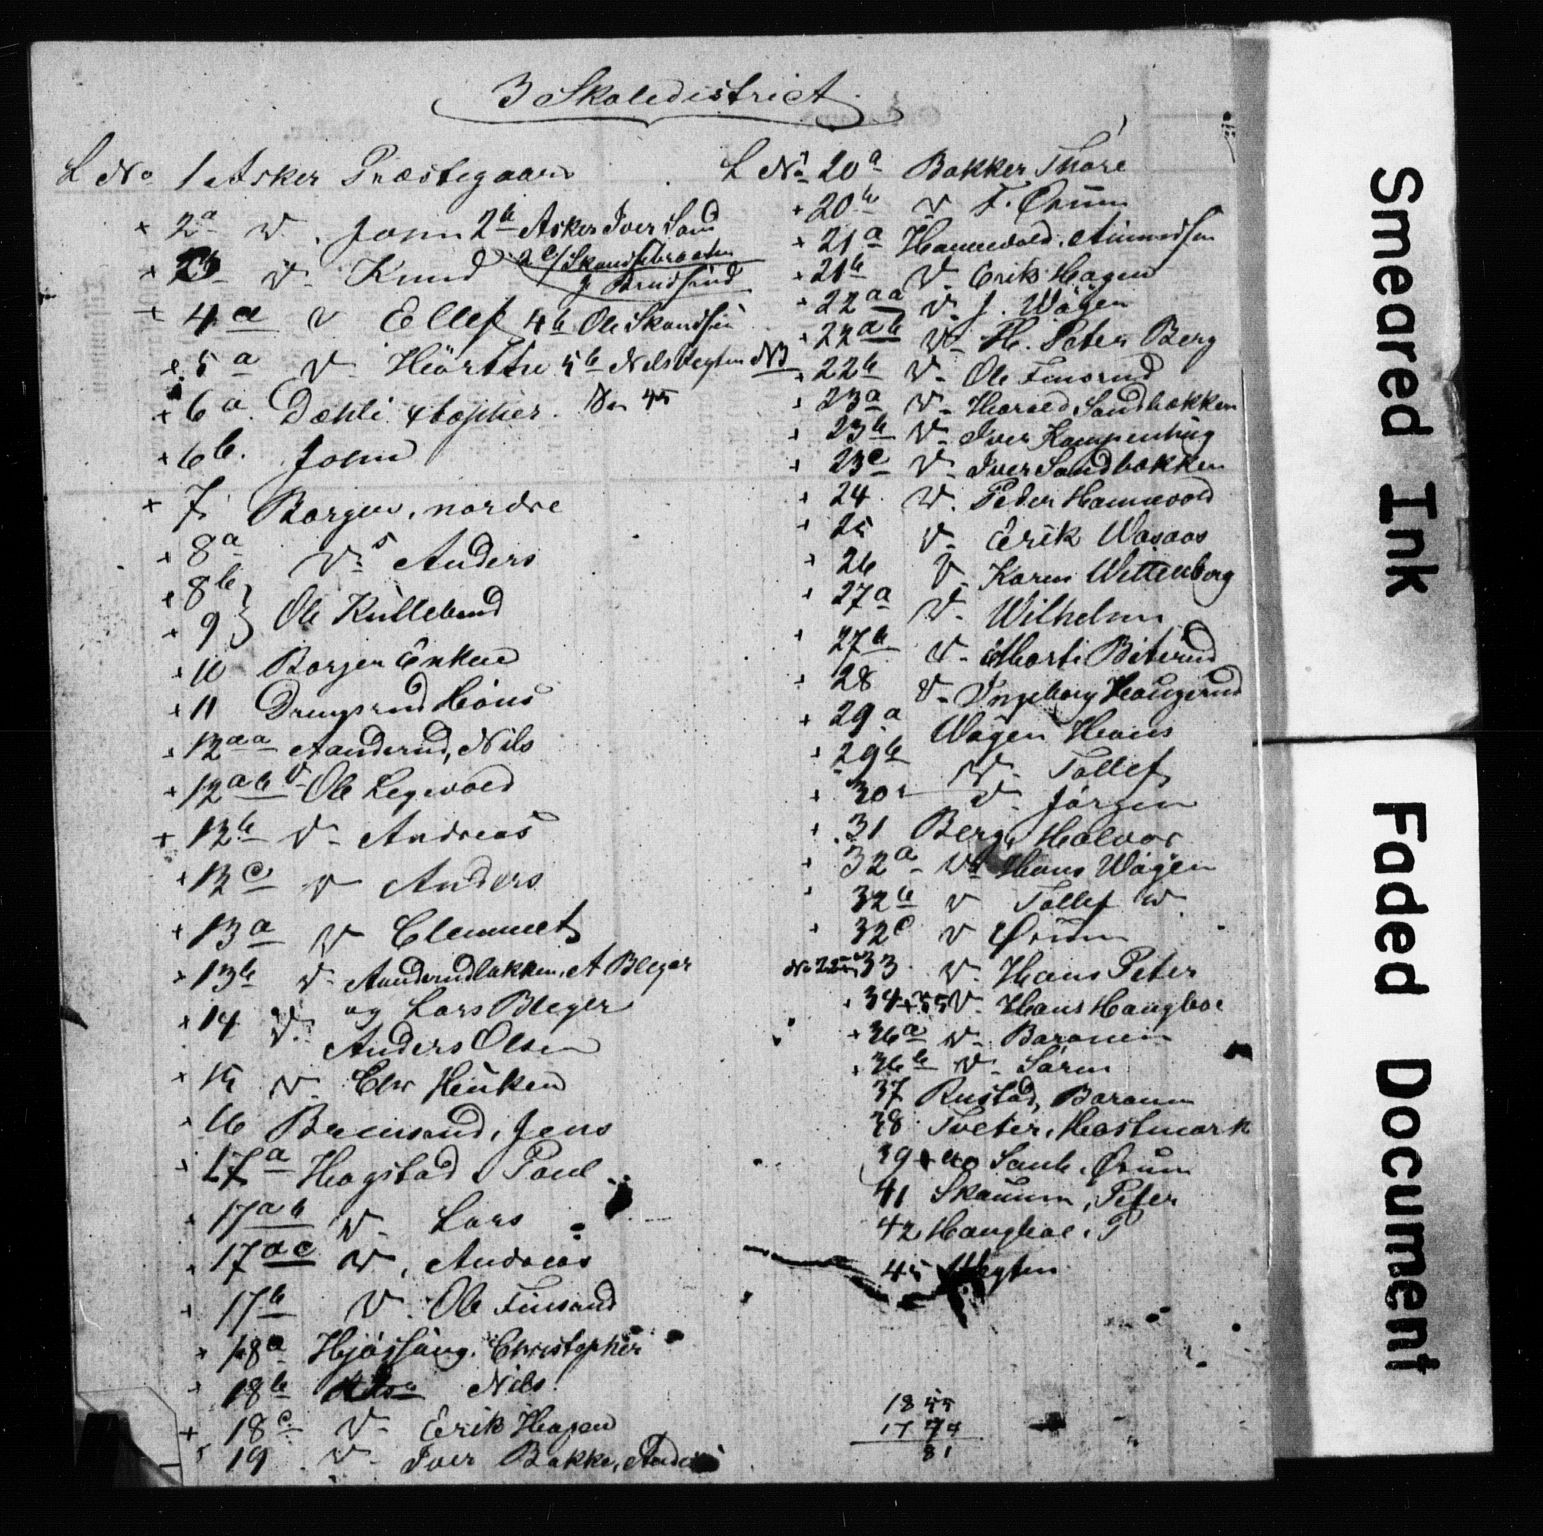 3 Skoledistrict
L No 1 Asker Præstegaard
+ 2a v. John 2b Asker Iver Sand
+ v. Knud 2c Skandsebraaten
+ 4a v Ellef 4b Ole Skandsen
5a v Hörthe 5b Nils Vegten NB
+ 6a Dæhli Xtopher. No 45
+ 6b. John
+ 7 Borgen, nordre
+ 8a v. s Anders
+ 8b }
+ 9 } Ole Kullebund
+ 10 Borgen Enken
+ 11 Drengsrud Hans
+ 12aa Aanderud, Nils
+ 12ab v Ole Legevold
+ 12b v. Andreas
+ 12c v Anders
+ 13a v Clemmet
+ 13b v. Aanderudbakken, A Bleger
og Lars Bleger
+ 14 v. Anders Olsen
+ 15 v.
+ 16 Jens
+ 17a Hogstad, Paul
+ 17ab v. Lars
+ 17ac v. Andreas
+ 17b v. Ole Finsrud
+ 18a Christopher
+ 18b Nils
+ 18c v. Erik Hagen
19 v. Iver Bakke,
L No 20a Bakker Thore
+ 20b v F. Örum
+ 21a Hannevold. Amundsen
+ 21b v. Erik Hagen
+ 22aa v. J. Wøyen
+ 22ab v. H. Peter Berg
+ 22b v. Ole Finsrud
+ 23a v. Harald Sandbakken
+ 23b v. Iver Kampenhaug
+ 23c v. Iver Sandbakken
+ 24 v. Peder Hannevold
+ 25 v. Erik Wasaas
+ 26 v Karen Wettenberg
+ 27a v. Wilhelm
+ 27b v. Marti Biterud
+ 28 v. Ingeborg Haugerud
+ 29a Wøyen Hans
+ 29b v. Tollef
+ 30 v. Jörgen
+ 31 Berg, Halvor
+ 32a v Hans Wøyen
32b v Tollef W.
+ 32c v Örum
33 v. Hans Peter
+ 34 + 35 v. Hans Haugboe
+ 36a v. Baronen
+ 36b v. Sören
37 Rustad, Baronen
38 Tveter, Hastmark
39 + 40 Örum
41 Skaunum, Peter
42 Haugboe. P
45 Vegten
1855
1774
81
Smeared Ink
Faded Document